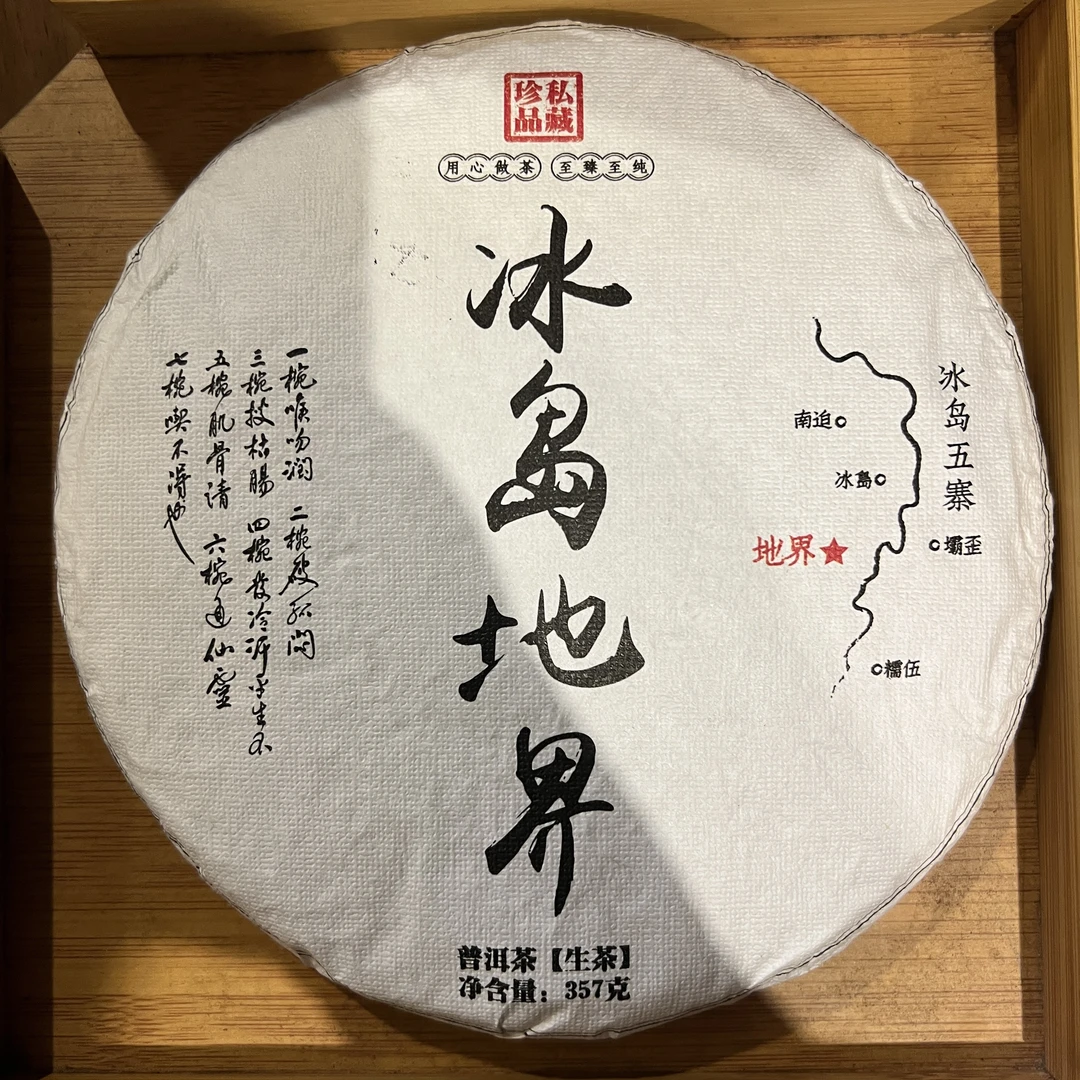 私藏
珍品
用心做茶 至臻至纯
冰島地界
冰岛五寨
南迫
冰島
地界
壩歪
糯伍
一椀喉吻潤 二椀破孤悶
三椀搜枯腸 四椀發冷汗平生不
五椀肌骨清 六椀通仙靈
七椀喫不得也
普洱茶【生茶】
净含量：357克